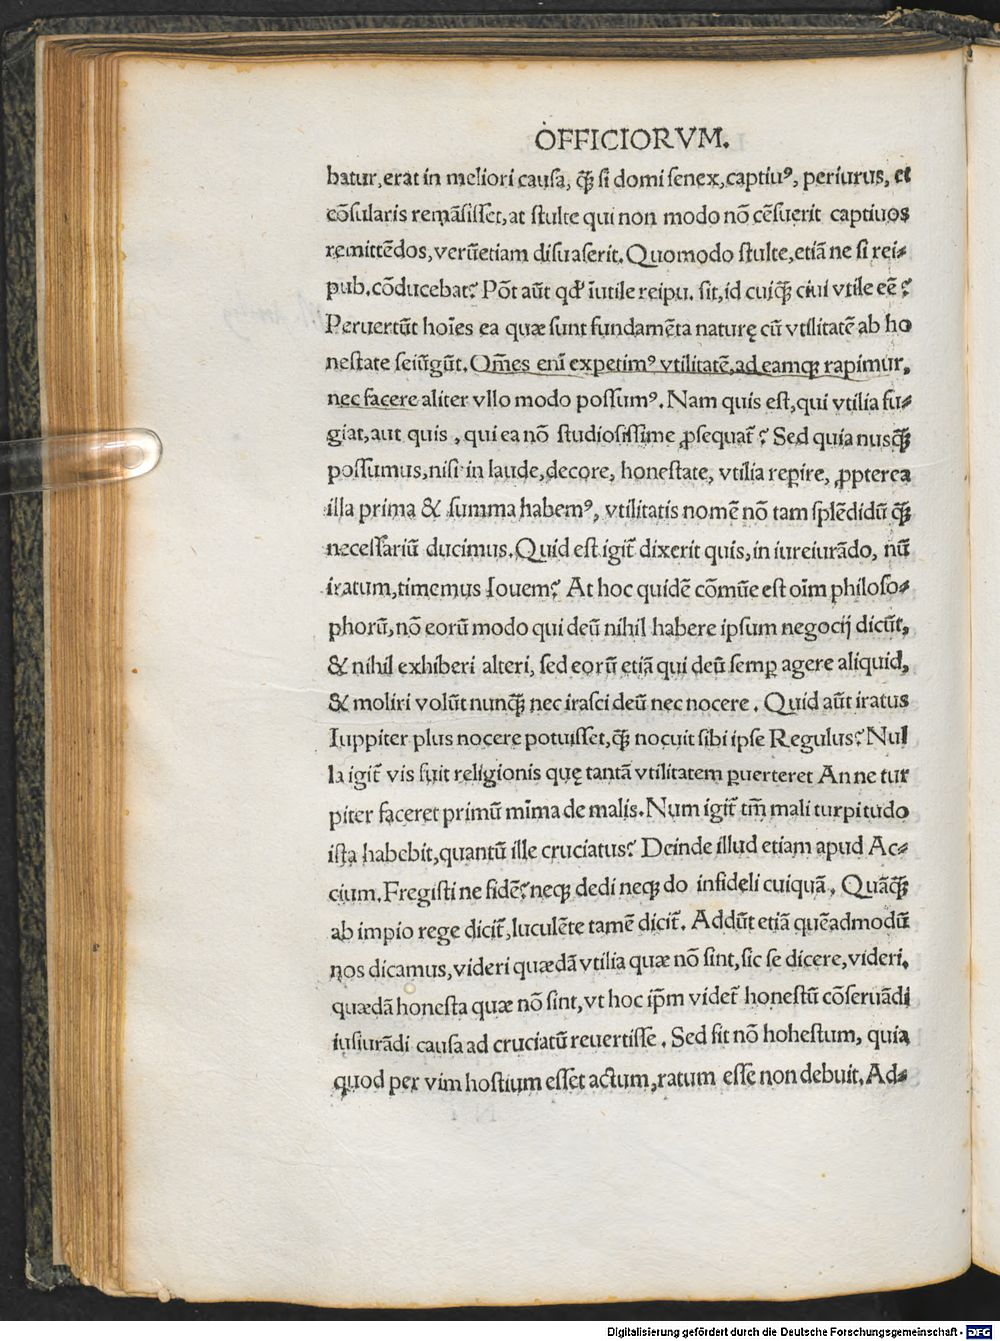 OFFICIORVM.
batur,erat in meliori causa, q̄ꝫ si domi senex,captiuꝰ, periurus, et
cōsularis remāsisset,at stulte qui non modo nō cēsuerit captiuos
remittēdos,verūetiam disuaserit.Quomodo stulte,etiā ne si rei⸗
pub.cōducebat? Pōt aūt qđ īutile reipu. sit,id cuiq̄ꝫ ciui vtile eē?
Peruertūt hoīes ea quæ sunt fundamēta naturę cū vtilitatē ab ho
nestate seiūgūt.Om̄es enī expetimꝰ vtilitatē,ad eamqꝫ rapimur,
nec facere aliter vllo modo possumꝰ.Nam quis est,qui vtilia fu⸗
giat,aut quis , qui ea nō studiosissime ꝓsequat̄? Sed quia nusq̄ꝫ
possumus,nisi in laude,decore, honestate, vtilia reꝑire, ꝓpterea
illa prima & summa habemꝰ, vtilitatis nomē nō tam splēdidū q̄ꝫ
necessariū ducimus.Quid est igit̄ dixerit quis,in iureiurādo, nū
iratum,timemus Iouem? At hoc quidē cōmūe est oīm philoso⸗
phorū,nō eorū modo qui deū nihil habere ipsum negocij dicūt,
& nihil exhiberi alteri, sed eorū etiā qui deū semꝑ agere aliquid,
& moliri volūt nunq̄ꝫ nec irasci deū nec nocere . Quid aūt iratus
Iuppiter plus nocere potuisset,q̄ꝫ nocuit sibi ipse Regulus? Nul
la igit̄ vis fuit religionis quę tantā vtilitatem ꝑuerteret An ne tur
piter faceret primū mīma de malis.Num igit̄ tm̄ mali turpitudo
ista habebit,quantū ille cruciatus? Deinde illud etiam apud Ac⸗
cium.Fregisti ne fidē?neqꝫ dedi neqꝫ do infideli cuiquā. Quāq̄ꝫ
ab impio rege dicit̄,luculēte tamē dicit̄. Addūt etiā quēadmodū
nos dicamus,videri quædā vtilia quæ nō sint,sic se dicere,videri,
quædā honesta quæ nō sint,vt hoc ip̄m videt̄ honestū cōseruādi
iusiurādi causa ad cruciatū reuertisse. Sed fit nō hohestum, quia
quod per vim hostium esset actum,ratum esse non debuit.Ad⸗
Digitalisierung gefördert durch die Deutsche Forschungsgemeinschaft - DFG